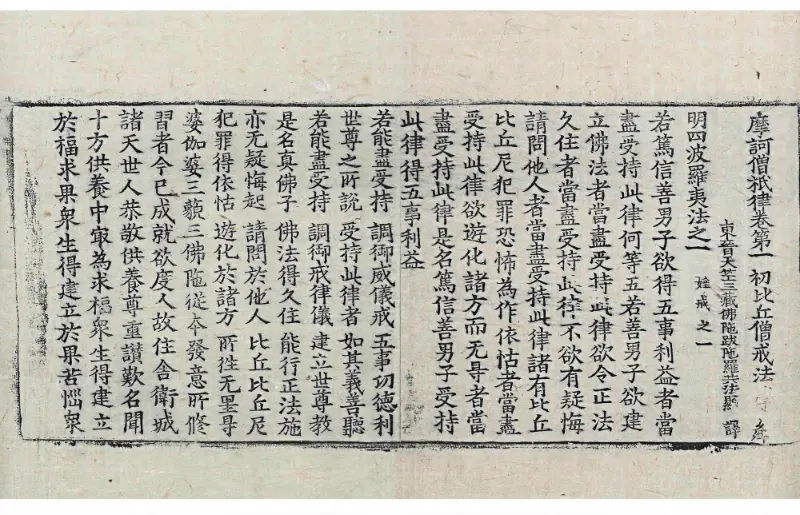 摩訶僧祇律卷第一 初比丘僧戒法
東晉天竺三藏佛陁跋陁羅共法顯 譯
明四波羅夷法之一 婬戒之一
若篤信善男子欲得五事利益者當
盡受持此律何等五若善男子欲建
立佛法者當盡受持此律欲令正法
久住者當盡受持此律不欲有疑悔
請問他人者當盡受持此律諸有比丘
比丘尼犯罪恐怖為作依怙者當盡
受持此律欲遊化諸方而无㝵者當
盡受持此律是名篤信善男子受持
此律得五事利益
若能盡受持 調御威儀戒 五事功德利
世尊之所說 受持此律者 如其義善聽
若能盡受持 調御戒律儀 建立世尊教
是名真佛子 佛法得久住 能行正法施
亦无疑悔起 請問於他人 比丘比丘尼
犯罪得依怙 遊化於諸方 所徃无罣㝵
婆伽婆三藐三佛陁從本發意所修
習者今已成就欲度人故住舍衛城
諸天世人恭敬供養尊重讚歎名聞
十方供養中冣為求福衆生得建立
於福求果衆生得建立於果苦惱衆